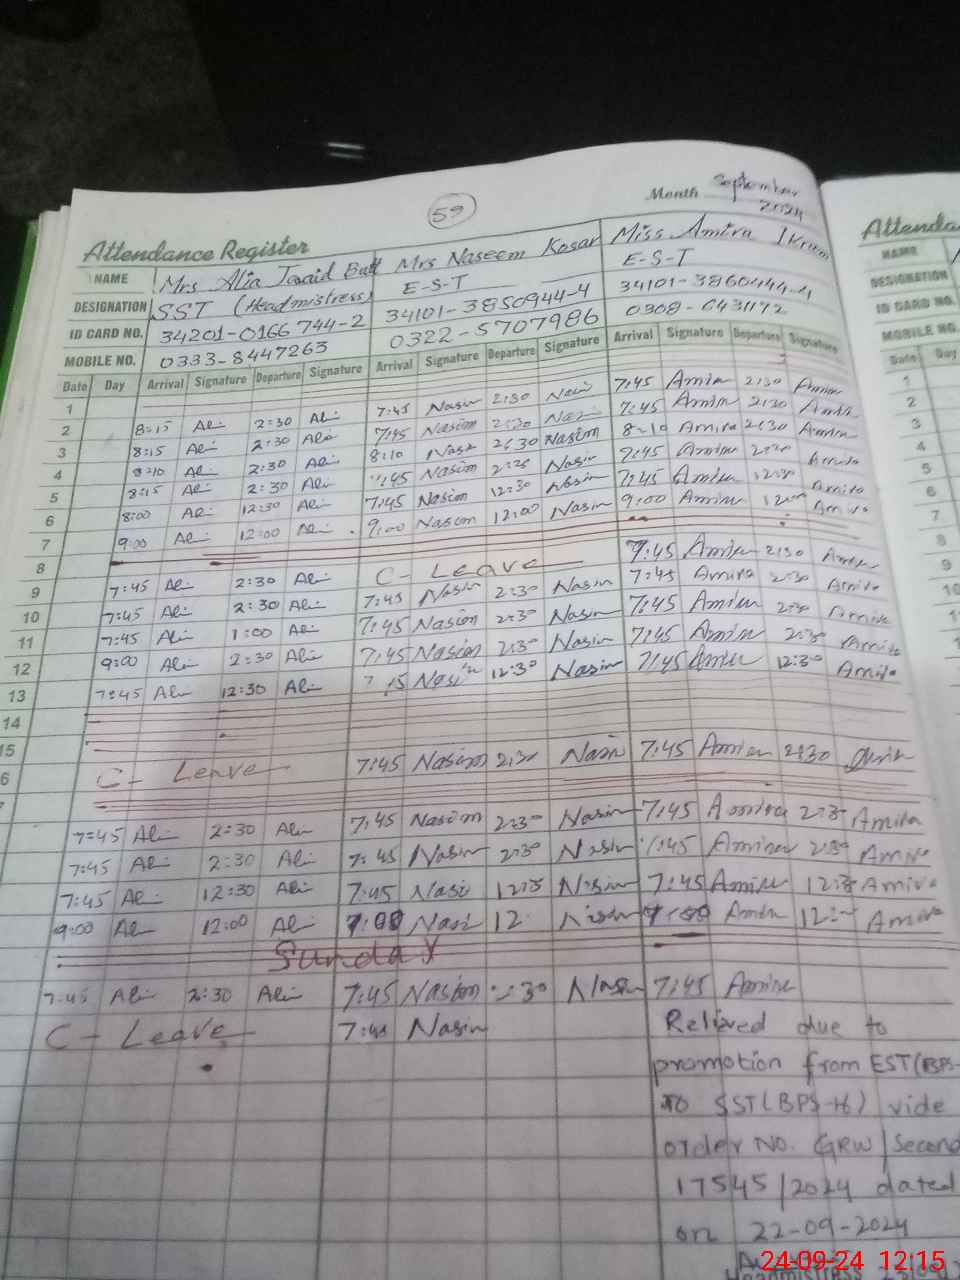 59
Month September 2024
Attendance Register
Attenda
NAME Mrs Alia Javaid Butt Mrs Naseem Kosar Miss Amira Ikram
NAME
DESIGNATION SST (Headmistress) E-S-T E-S-T
DESIGNATION
ID CARD NO. 34201-0166744-2 34101-3850944-4 34101-3860444-4
ID CARD NO.
MOBILE NO. 0333-8447263 0322-5707986 0308-6431172
MOBILE NO.
Date Day Arrival Signature Departure Signature Arrival Signature Departure Signature Arrival Signature Departure Signature
Date Day
1
2 8:15 Ali 2:30 Ali 7:45 Nasim 2:30 7:45 Amira 2:30 Amira
3 8:15 Ali 2:30 Ali 7:45 Nasim 2:30 Nasim 7:45 Amira 2:30 Amira
4 8:10 Ali 2:30 Ali 8:10 2:30 Nasim 8-10 Amira 2:30 Amira
5 8:15 Ali 2:30 Ali Nasim Nasim 7:45 Amira Amira
6 8:00 Ali 12:30 Ali 7:45 Nasim 12:30 Nasim 7:45 Amira 12:30 Amira
7 9:00 Ali 12:00 Ali 9:00 Nasim 12:00 Nasim 9:00 Amira Amira
8
9 7:45 Ali 2:30 Ali C- Leave 7:45 Amira 2:30 Amira
10 7:45 Ali 2:30 Ali 7:45 Nasim 2:30 Nasim 7:45 Amira 2:30 Amira
11 7:45 Ali 1:00 Ali 7:45 Nasim 2:30 Nasim 7:45 Amira 2:30 Amira
12 9:00 Ali 2:30 Ali 7:45 Nasim 2:30 Nasim 7:45 Amira 2:30 Amira
13 7:45 Ali 12:30 Ali Nasim 12:30 Nasim 7:45 Amira 12:30 Amira
14
15
6 C- Leave 7:45 Nasim 2:30 Nasim 7:45 Amira 2:30 Amira
7:45 Ali 2:30 Ali 7:45 Nasim 2:30 Nasim 7:45 Amira 2:30 Amira
7:45 Ali 2:30 Ali 7:45 Nasim 2:30 Nasim 7:45 Amira 2:30 Amira
7:45 Ali 12:30 Ali 7:45 Nasim 12:30 Nasim 7:45 Amira 12:30 Amira
9:00 Ali 12:00 Ali Nasim 12 Nasim Amira Amira
Sunday
7:45 Ali 2:30 Ali 7:45 Nasim 30 Nasim 7:45 Amira
C- Leave 7:45 Nasim
Relieved due to
promotion from EST (BPS-
to SST (BPS-16) vide
order NO. GRW/Second
17545/2024 dated
on 22-09-2024
Headmistress
1
2
3
4
5
6
7
8
9
10
24-09-24 12:15